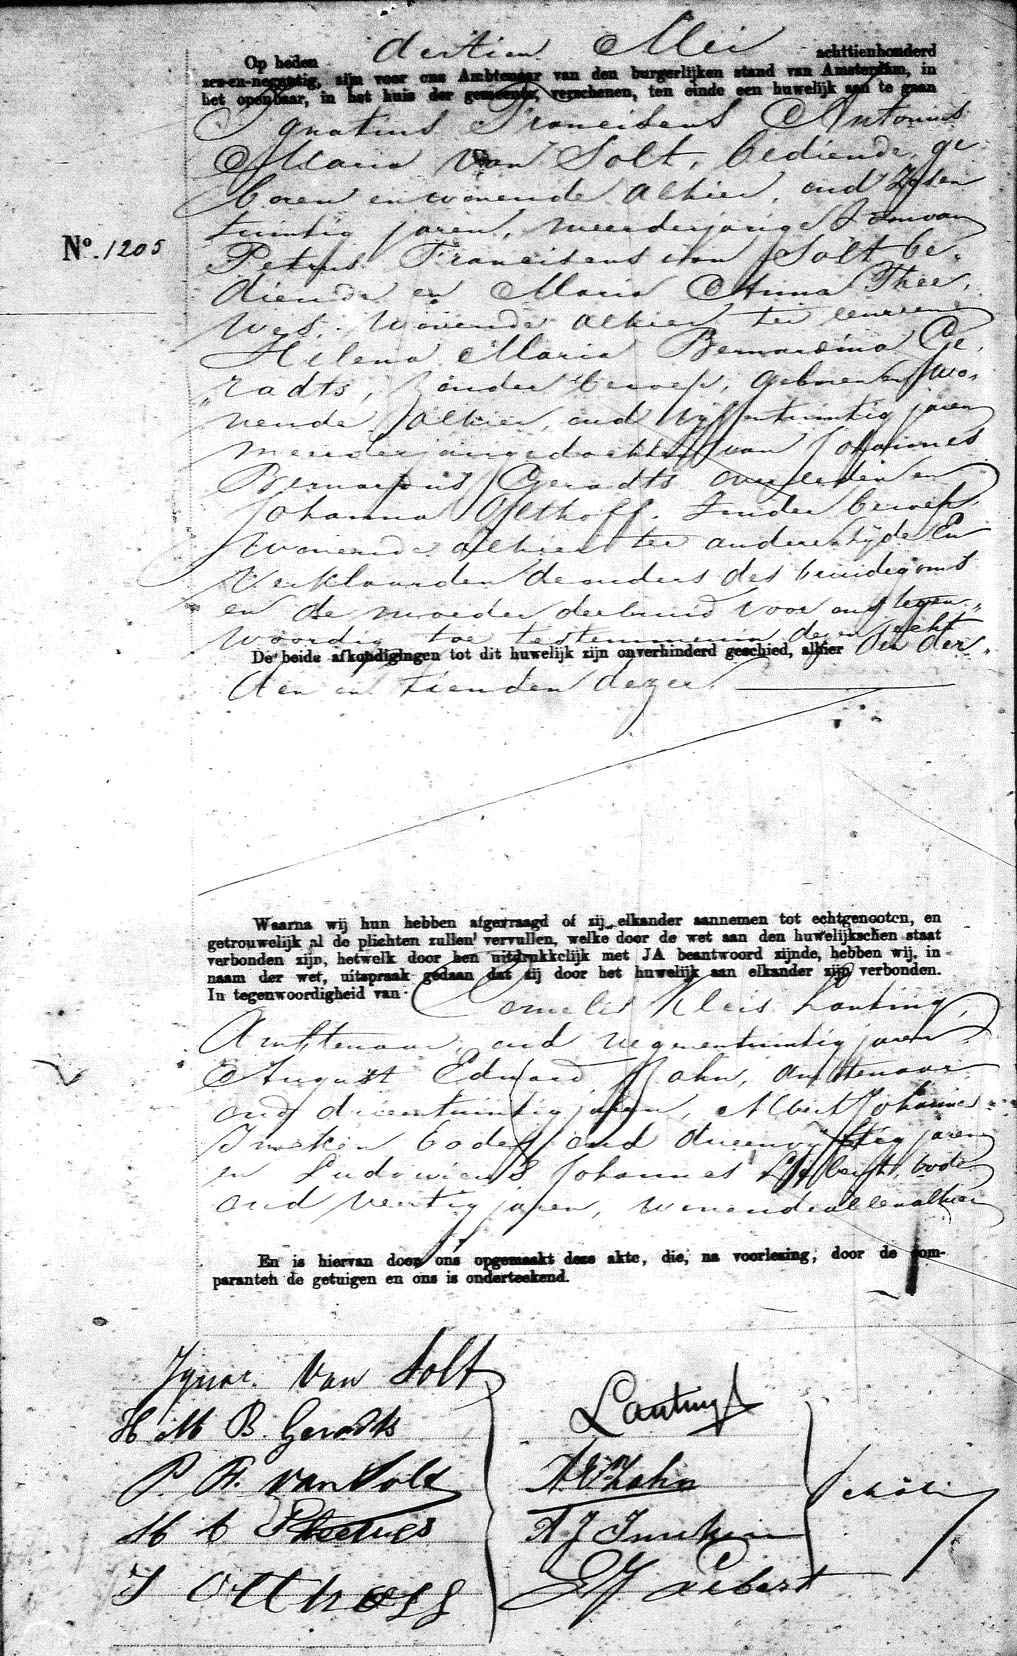 Op heden dertien Mei achttienhonderd
zes-en-negentig, zijn voor ons Ambtenaar van den burgerlijken stand van Amsterdam, in
het openbaar, in het huis der gemeente, verschenen, ten einde een huwelijk aan te gaan
Ignatius Franciscus Antonius
Maria van Solt, bediende, ge
boren en wonende alhier, oud zesen
twintig jaren, meerderjarige zoon van
Petrus Franciscus van Solt be,
diende en Maria Anna Thee,
wes, wonende alhier ter eenre en
Helena Maria Bernardina Ge,
radts, zonder beroep, geboren en wo,
nende alhier, oud vijfentwintig jaren
meerderjarige dochter van Johannes
Bernardus Geradts overleden en
Johanna Olthoff, zonder beroep,
wonende alhier ter andere zijde En
verklaarden de ouders des bruidegoms
en de moeder der bruid voor ons tegen,
woordig toe te stemmen in dezen echt
De beide afkondigingen tot dit huwelijk zijn onverhinderd geschied, alhier den der,
den en tienden dezer.
No. 1205
Waarna wij hun hebben afgevraagd of zij elkander aannemen tot echtgenooten, en
getrouwelijk al de plichten zullen vervullen, welke door de wet aan den huwelijkschen staat
verbonden zijn, hetwelk door hen uitdrukkelijk met JA beantwoord zijnde, hebben wij, in
naam der wet, uitspraak gedaan dat zij door het huwelijk aan elkander zijn verbonden.
In tegenwoordigheid van Cornelis Kleis Lanting,
Ambtenaar, oud negenentwintig jaren,
August Eduard Zahn, ambtenaar
oud drieentwintig jaren, Albert Johannes
bode, oud drieenvijftig jaren
en Ludovicus Johannes bode
oud veertig jaren, wonende allen alhier
En is hiervan door ons opgemaakt deze akte, die, na voorlezing, door de com-
paranten de getuigen en ons is onderteekend.
Ignat. van Solt
H M B. Geradts
P. F. van Solt
M A Theewes
J Olthoff
Lanting
A E Zahn
A J